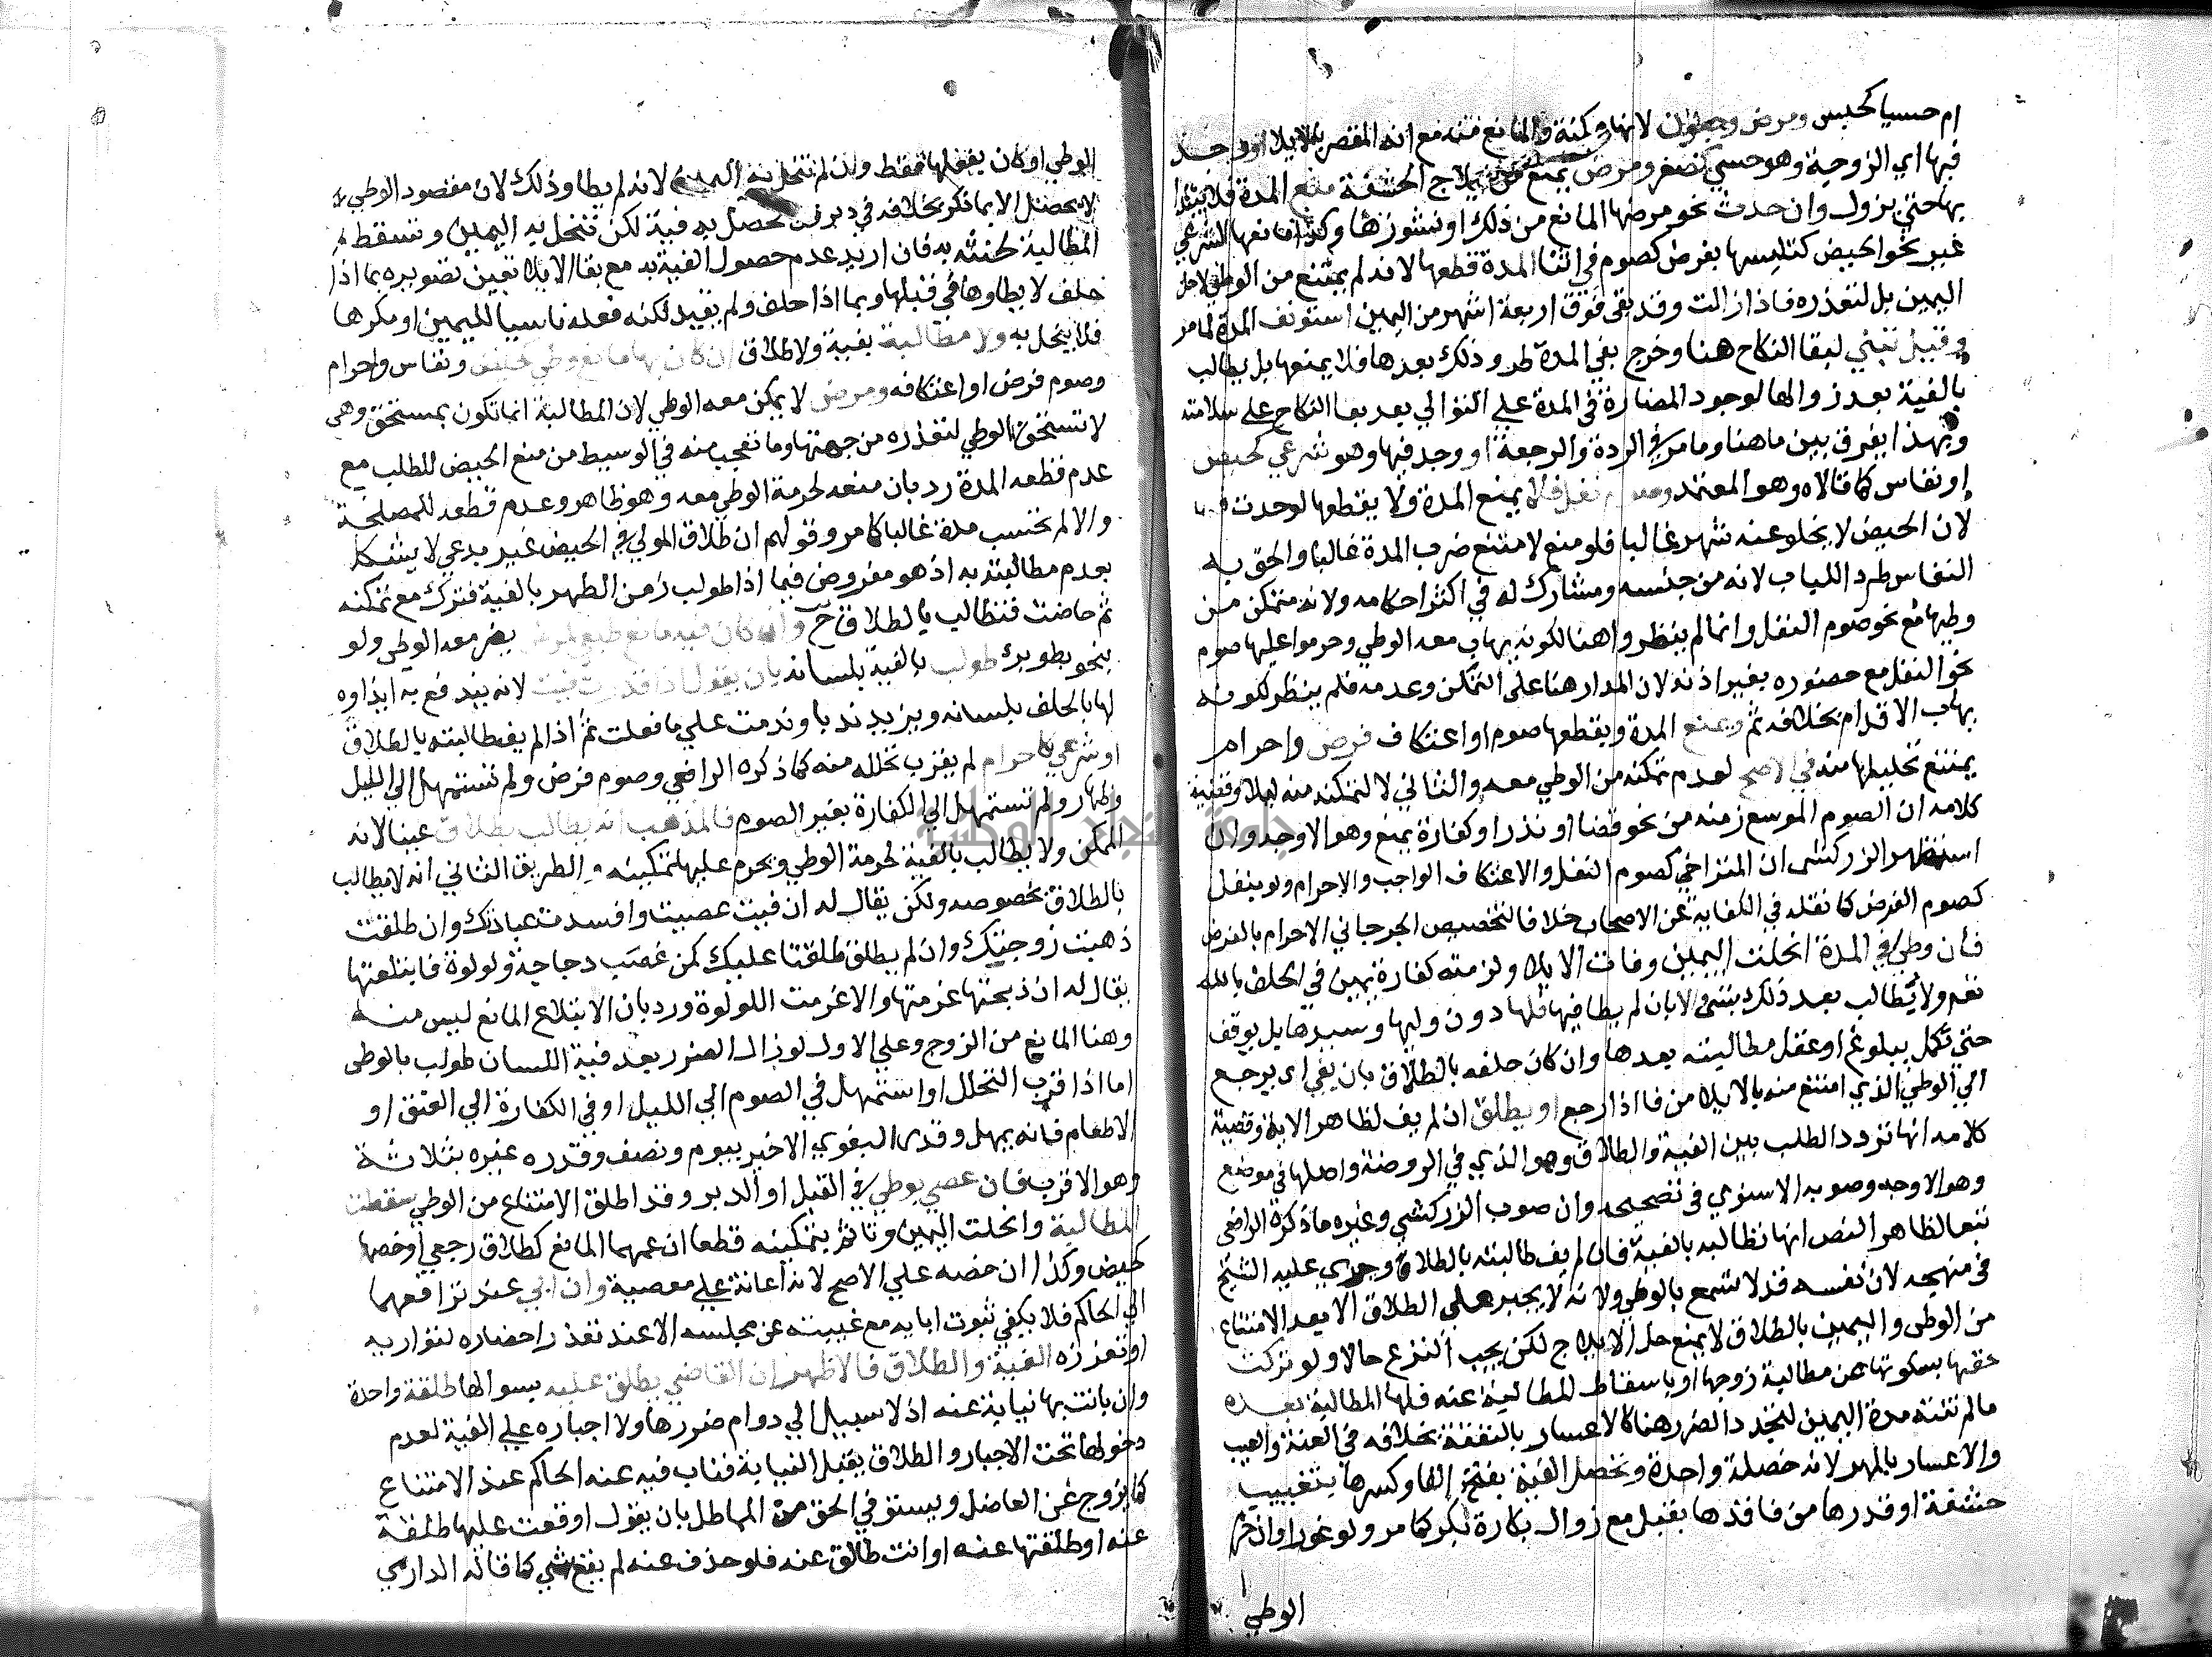 ام حسيا كحبس ومرض وجنون لانها ممكنة والمانع منه مع انه المقصر بالايلاء او وجد
فيها اي الزوجية وهو حسي كصغر ومرض يمنع من ايلاج الحشفة منع المدة فلا يبتدا
بها حتي يزول وان حدث نحو مرضها المانع من ذلك او نشوزها وكذا مانعها الشرعي
غير نحو الحيض كتلبسها بفرض كصوم في اثنا المدة قطعها لانه لم يمتنع من الوطي لاجل
اليمين بل لتعذره فاذا زالت وقد بقي فوق اربعة اشهر من اليمين استونف المدة لما مر
وقيل تبني لبقا النكاح هنا وخرج بفي المدة طرو ذلك بعدها فلا يمنعها بل يطالب
بالفية بعد زوالها لوجود المضارة في المدة علي التوالي بعد بقا النكاح علي سلامته
وبهذا يفرق بين ما هنا وما مر في الردة والرجعة او وجد فيها وهو شرعي كحيض
او نفاس كما قالاه وهو المعتمد وصوم نفل فلا يمنع المدة ولا يقطعها لو حدث فيها
لان الحيض لا يخلو عنه شهر غالبا فلو منع لامتنع ضرب المدة غالبا والحق به
النفاس طردا للباب لانه من جنسه ومشارك له في اكثر احكامه ولانه متمكن من
وطيها مع نحو صوم النفل وانما لم ينظروا هنا لكونه يهاب معه الوطي وحرموا عليها صوم
نحو النفل مع حضوره بغير اذنه لان المدار هنا علي التمكن وعدمه فلم ينظر لكونه
يهاب الاقدام بخلافه ثم ويمنع المدة ويقطعها صوم او اعتكاف فرض واحرام
يمتنع تحليلها منه في الاصح لعدم تمكنه من الوطي معه والثاني لا لتمكنه منه ليلا وقضية
كلامه ان الصوم الموسع زمنه من نحو قضا او نذر او كفارة يمنع وهو الاوجه وان
استظهر الزركشي ان المتراخي كصوم النفل والاعتكاف الواجب والاحرام ولو بنفل
كصوم الفرض كما نقله في الكفاية عن الاصحاب خلافا لتخصيص الجرجاني الاحرام بالفرض
فان وطي في المدة انحلت اليمين وفات الايلا ولزمته كفارة يمين في الحلف بالله
نعم ولا يطالب بعد ذلك بشي والا بان لم يطا فيها فلها دون وليها وسيدها بل يوقف
حتي تكمل ببلوغ او عقل مطالبته بعدها وان كان حلفه بالطلاق بان يفي اي يرجع
الي الوطي الذي امتنع منه بالايلا من فا اذا رجع او يطلق ان لم يف لظاهر الاية وقضية
كلامه انها تردد الطلب بين الفية والطلاق وهو الذي في الروضة واصلها في موضع
وهو الاوجه وصوبه الاسنوي في تصحيحه وان صوب الزركشي وغيره ما ذكره الرافعي
تبعا لظاهر النص انها تطالبه بالفية فان لم يف طالبته بالطلاق وجري عليه الشيخ
في منهجه لان نفسه قد لا تسمح بالوطي ولانه لا يجبر علي الطلاق الا بعد الامتناع
من الوطي واليمين بالطلاق لا يمنع حل الايلاج لكن يجب النزع حالا ولو تركت
حقها بسكوتها عن مطالبة زوجها او باسقاط المطالبة عنه فلها المطالبة بعده
ما لم تنته مدة اليمين لتجدد الضرر هنا كالاعسار بالنفقة بخلافه في العنة والعيب
والاعسار بالمهر لانه خصلة واحدة وتحصل الفية بفتح الفا وكسرها بتغييب
حشفة او قدرها من فاقدها بقبل مع زوال بكارة بكر كما مر ولو غورا وان حرم
الوطي
الوطي او كان بفعلها فقط وان لم تنحل به اليمين لانه لم يطا وذلك لان مقصود الوطي
لا يحصل الا بما ذكر بخلافه في دبر فلا تحصل به فية لكن تنحل به اليمين وتسقط
المطالبة لحنثه به فان اريد عدم حصول الفية به مع بقا الايلا تعين تصويره بما اذا
حلف لا يطاوها في قبلها وبما اذا حلف ولم يقيد لكنه فعله ناسيا لليمين او مكرها
فلا ينحل به ولا مطالبة بفية ولا طلاق ان كان بها مانع وطي كحيض ونفاس واحرام
وصوم فرض او اعتكافه ومرض لا يمكن معه الوطي لان المطالبة انما تكون بمستحق وهي
لا تستحق الوطي لتعذره من جهتها وما تعجب منه في الوسيط من منع الحيض للطلب مع
عدم قطعه المدة رد بان منعه لحرمة الوطي معه وهو ظاهر وعدم قطعه للمصلحة
والا لم تحتسب مدة غالبا كما مر وقولهم ان طلاق المولي في الحيض غير بدعي لا يشكل
بعدم مطالبته به اذ هو مفروض فيما اذا طولب زمن الطهر بالفية فترك مع تمكنه
ثم حاضت فتطالب بالطلاق ح وان كان فيه مانع طبعي كمرض يضر معه الوطي ولو
بنحو بطو برء طولب بالفية بلسانه بان يقول اذا قدرت فيت لانه يندفع به ايذاوه
لها بالحلف بلسانه ويزيد ندبا وندمت علي ما فعلت ثم اذا لم يف طالبته بالطلاق
او شرعي كاحرام لم يقرب تحلله منه كما ذكره الرافعي وصوم فرض ولم تستمهل الي الليل
وظهار ولم تستمهل الي الكفارة بغير الصوم فالمذهب انه يطالب بطلاق عينا لانه
الممكن ولا يطالب بالفية لحرمة الوطي ويحرم عليها تمكينه و الطريق الثاني انه لا يطالب
بالطلاق بخصوصه ولكن يقال له ان فيت عصيت وافسدت عبادتك وان طلقت
ذهبت زوجتك وان لم يطلق طلقنا عليك كمن غصب دجاجة ولولوة فابتلعتها
يقال له ان ذبحتها غرمتها والا غرمت اللولوة ورد بان الابتلاع المانع ليس منه
وهنا المانع من الزوج وعلي الاول لو زال الضرر بعد فية اللسان طولب بالوطي
اما اذا قرب التحلل او استمهل في الصوم الي الليل او في الكفارة الي العتق او
الاطعام فانه يمهل وقدر البغوي الاخير بيوم ونصف وقدره غيره بثلاثة
وهو الاقرب فان عصي بوطي في القبل او الدبر وقد اطلق الامتناع من الوطي سقطت
المطالبة وانحلت اليمين وتاثم بتمكينه قطعا ان عمهما المانع كطلاق رجعي او خصها
كحيض وكذا ان خصه علي الاصح لانه اعانة علي معصية وان ابي عند ترافعهما
الي الحاكم فلا يكفي ثبوت ابايه مع غيبته عن مجلسه الا عند تعذر احضاره لتواريه
او تعززه الفية والطلاق فالاظهر ان القاضي يطلق عليه بسوالها طلقة واحدة
وان بانت بها نيابة عنه اذ لا سبيل الي دوام ضررها ولا اجباره علي الفية لعدم
دخولها تحت الاجبار والطلاق يقبل النيابة فناب فيه عنه الحاكم عند الامتناع
كما يزوج عن العاضل ويستوفي الحق من المماطل بان يقول اوقعت عليها طلقة
عنه او طلقتها عنه او انت طالق عنه فلو حذف عنه لم يقع شي كما قاله الدارمي